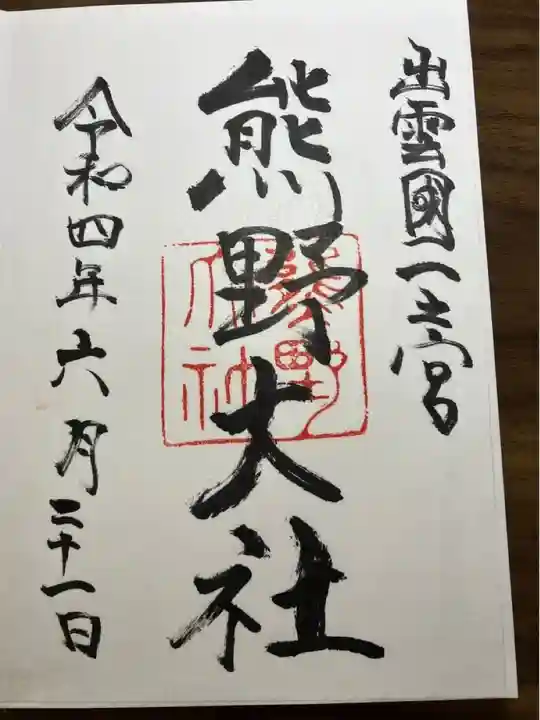 出雲國一之宮
熊野大社
令和四年六月二十一日